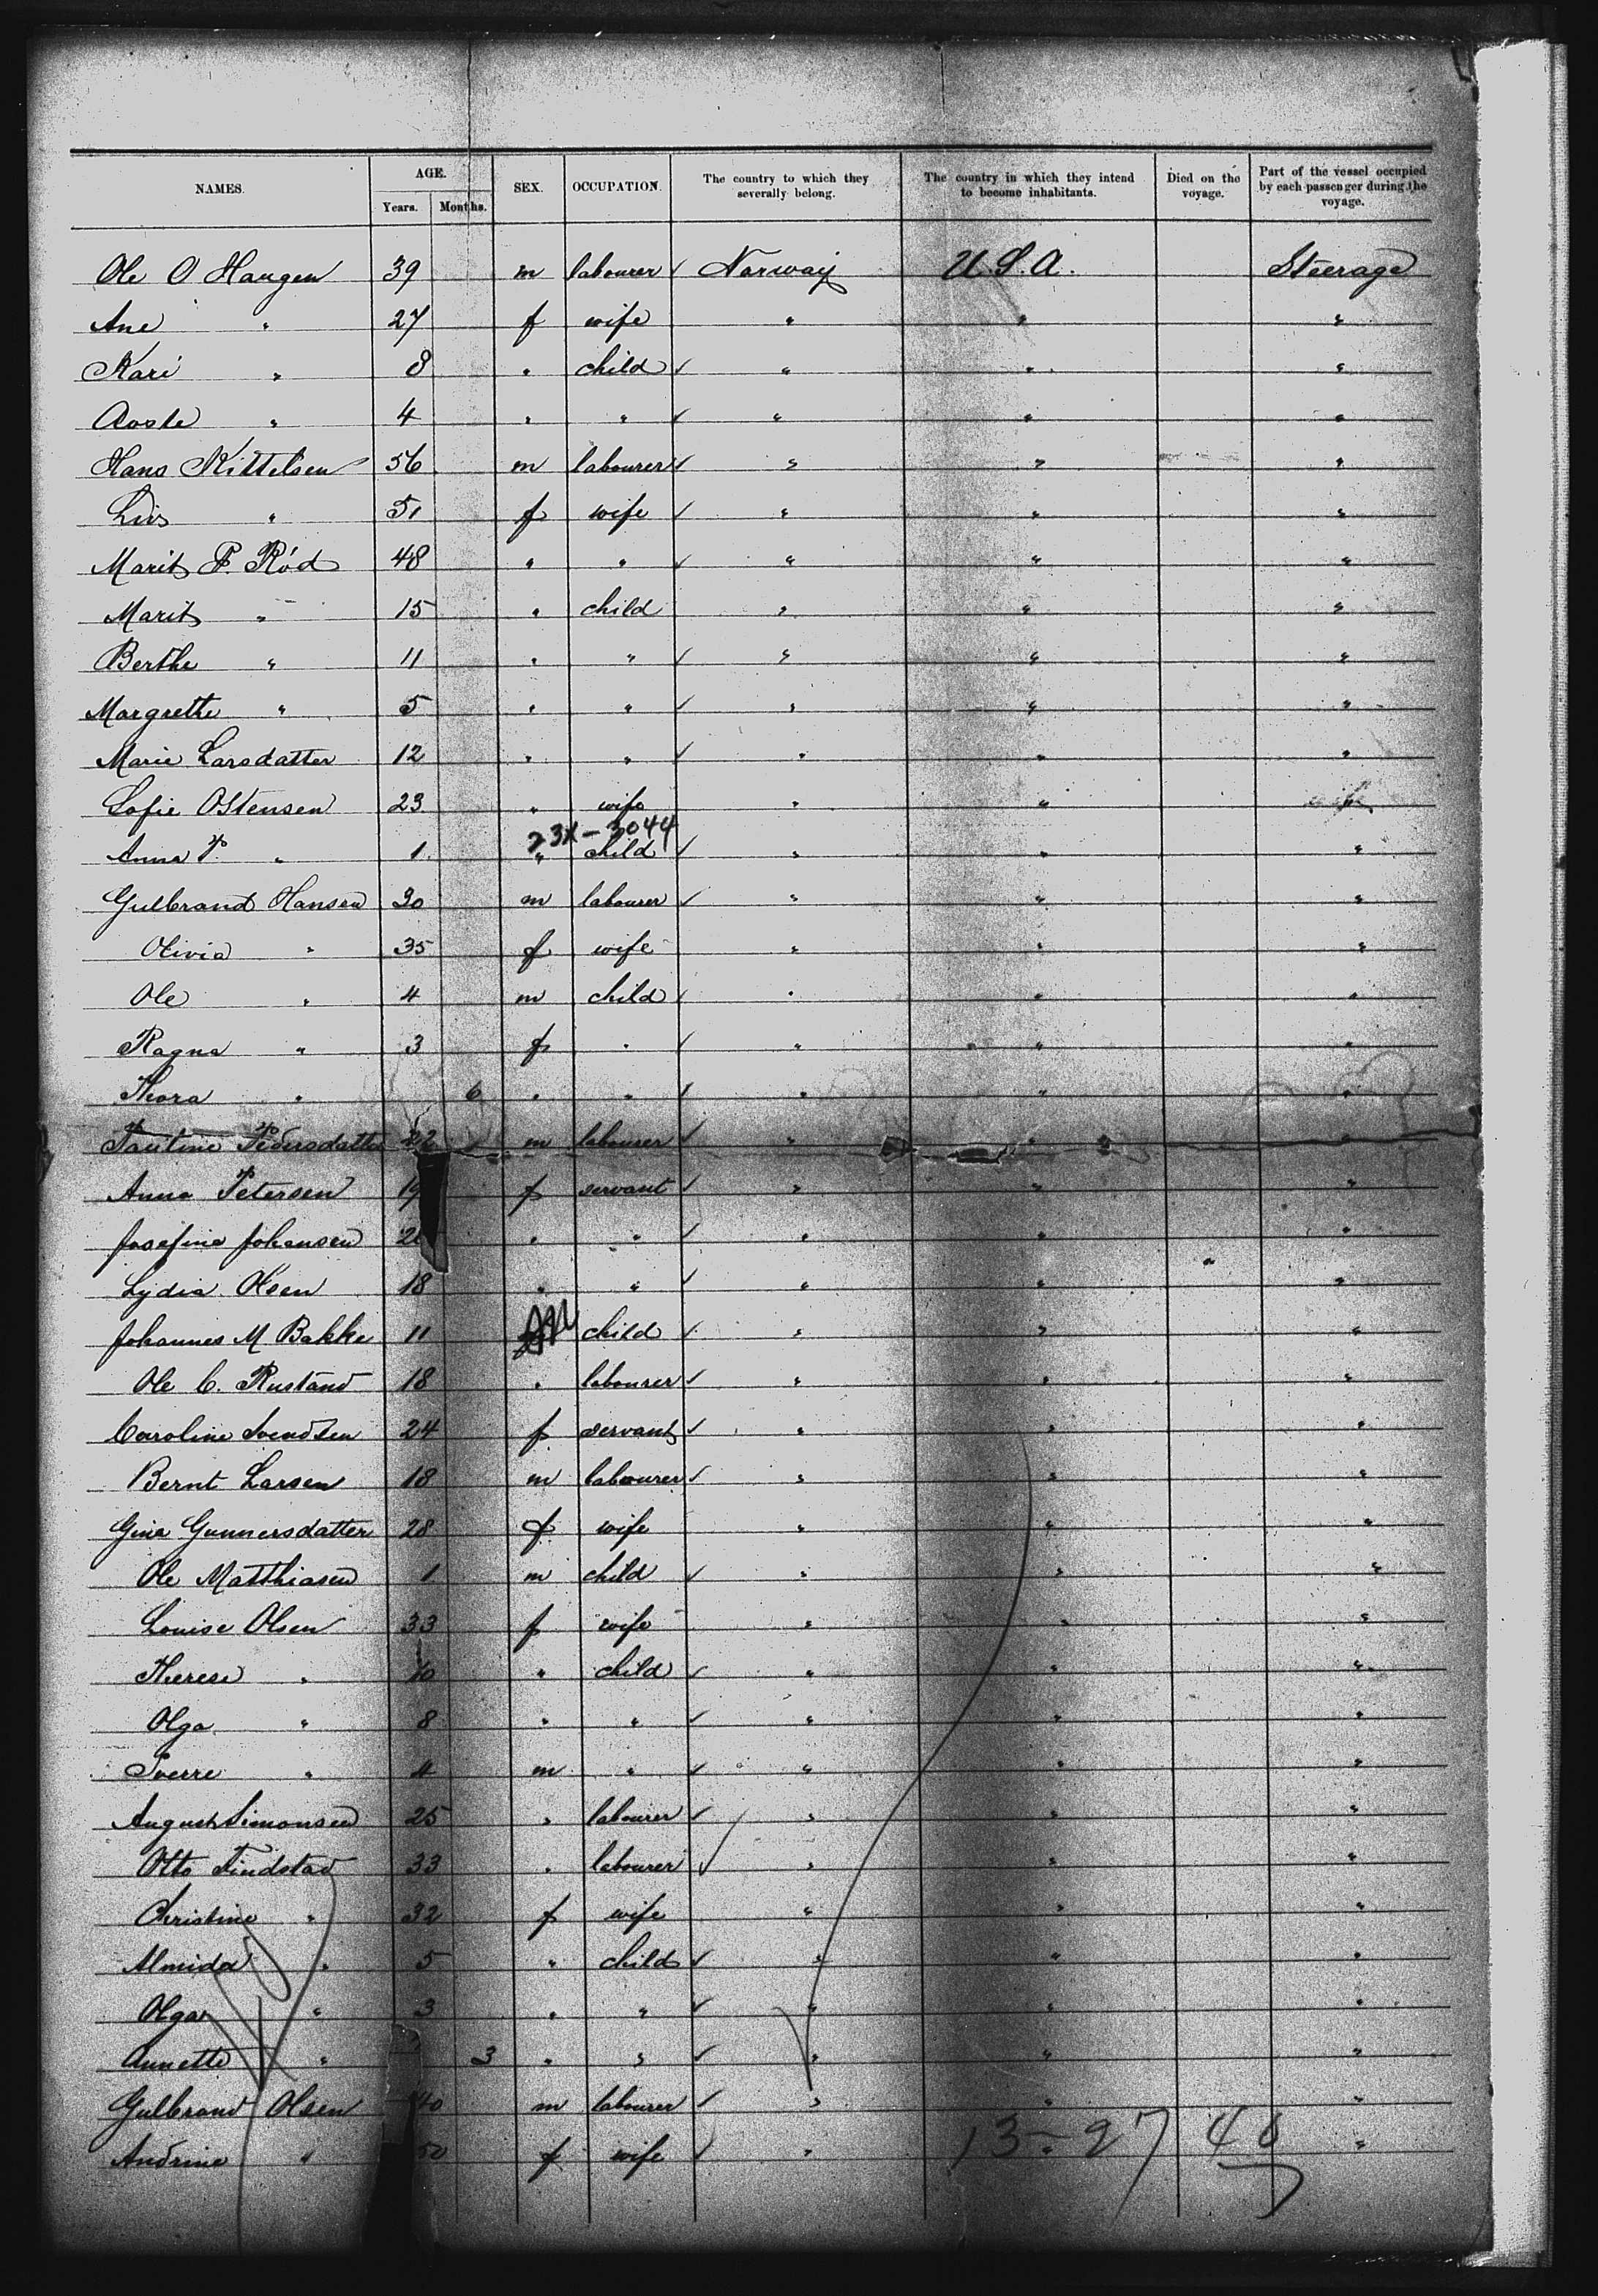 NAMES. AGE. SEX. OCCUPATION. The country to which they severally belong. The country in which they intend to become inhabitants. Died on the voyage. Part of the vessel occupied by each passenger during the voyage.
Years. Months.
Ole O Haugen 39 m labourer ✓ Norway U.S.A. Steerage
Ane " 27 f wife " " "
Kari " 8 " child ✓ " " "
Aaste " 4 " " ✓ " " "
Hans Kittelsen 56 m labourer ✓ " " "
Livs " 51 f wife ✓ " " "
Marit P. Röd 48 " " ✓ " " "
Marit " 15 " child " " "
Berthe " 11 " " ✓ " " "
Margrethe " 5 " " ✓ " " "
Marie Larsdatter 12 " " ✓ " " "
Sofie Ostensen 23 " wife " " "
23X-3044
Anna P. " 1 " child ✓ " " "
Gulbrand Hansen 30 m labourer ✓ " " "
Olivia " 35 f wife " " "
Ole " 4 m child ✓ " " "
Ragna " 3 f " ✓ " " "
Thora " 6 " " ✓ " " "
Pauline Pedersdatter 22 m labourer ✓ " " "
Anna Petersen 19 f servant ✓ " " "
Josefine Johansen " " ✓ " " "
Lydia Olsen 18 " " ✓ " " "
Johannes M Bakke 11 child ✓ " " "
Ole C. Rustand 18 " labourer ✓ " " "
Caroline Svendsen 24 f servant ✓ " " "
Bernt Larsen 18 m labourer ✓ " " "
Gina Gunnersdatter 28 f wife " " "
Ole Matthiasen 1 m child ✓ " " "
Louise Olsen 33 f wife " " "
Therese " 10 " child ✓ " " "
Olga " 8 " " ✓ " " "
Sverre " 4 m " ✓ " " "
August Simonsen 25 " labourer ✓ " " "
Otto Findstad 33 " labourer ✓ " " "
Christine " 32 f wife " " "
Almida " 5 " child ✓ " " "
Olga " 3 " " ✓ " " "
Annette " 3 " " ✓ " " "
Gulbrand Olsen 40 m labourer ✓ " " "
Andrine " 50 f wife ✓ " " "
13-27 40